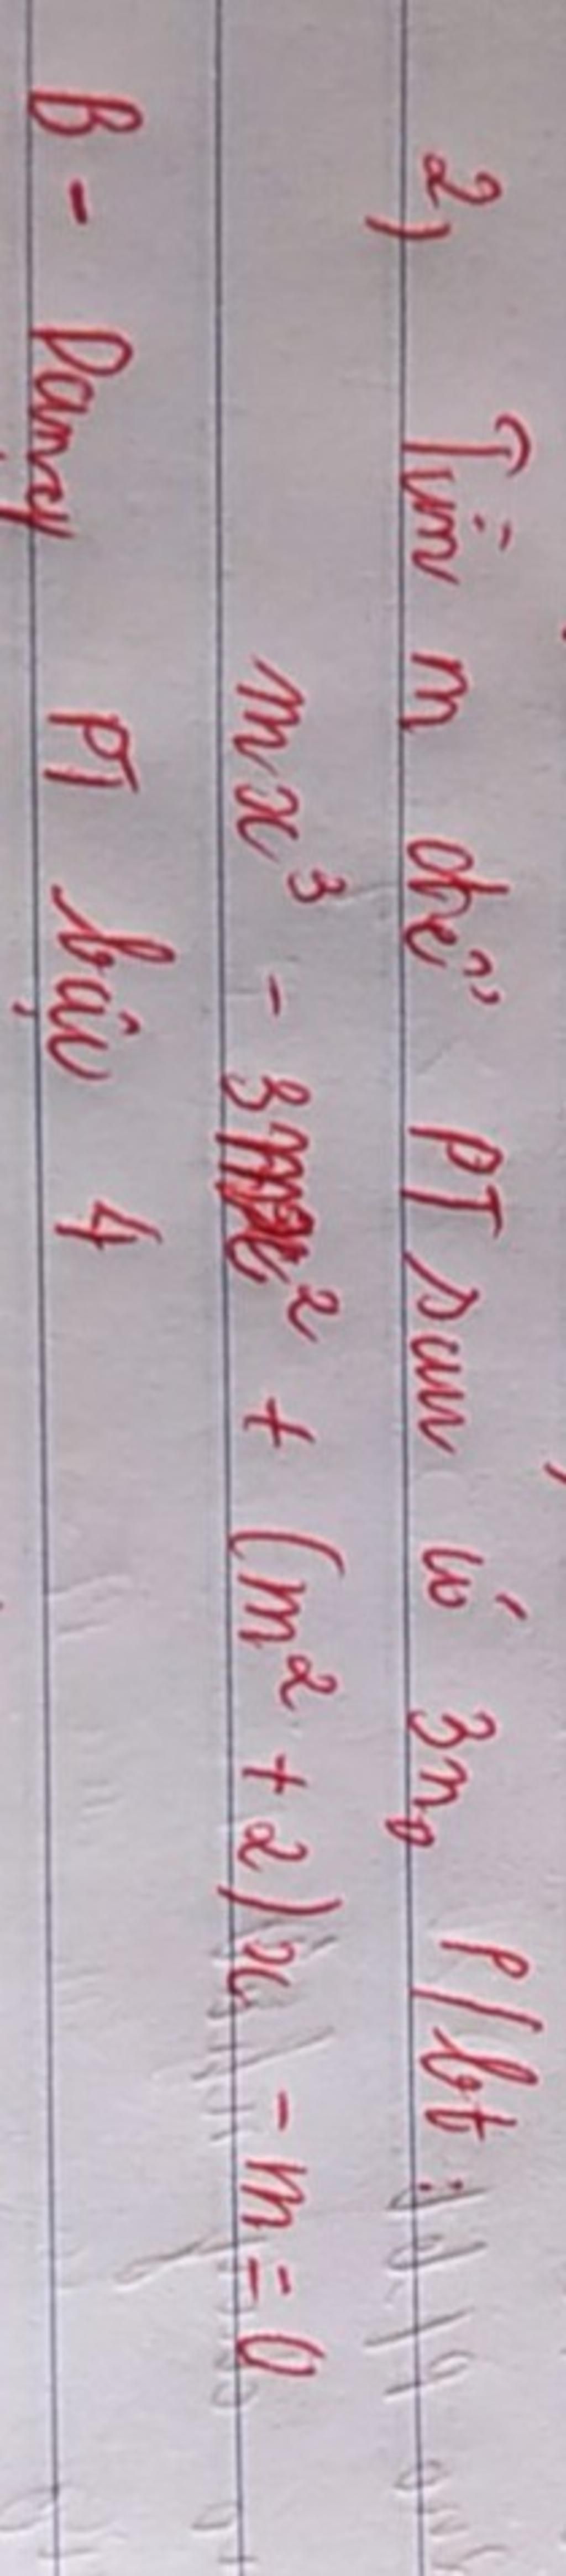 2) Tìm m để PT sau có 3n₀ p/bt:
mx³ - 3mx² + (m² + 2)x - m = 0
B - Dạng PT bậc 4